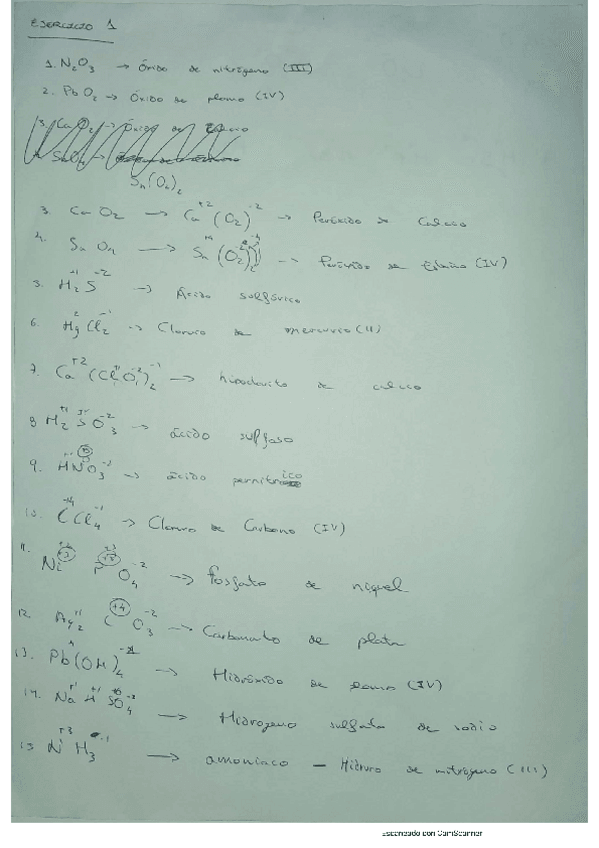 EJERCICIO 1
1. N2O3 → Óxido de nitrógeno (III)
2. PbO2 → Óxido de plomo (IV)
3. CaO2 → Óxido de
Sn(O2)2
3. CaO2 → Ca+2 (O2)-2 → Peróxido de calcio
4. SnO4 → Sn+4 (O2)2 → Peróxido de Estaño (IV)
5. H2+1 S-2 → Ácido sulfúrico
6. Hg2 Cl2-1 → Cloruro de mercurio (II)
7. Ca+2 (Cl+1O-2)2-1 → hipoclorito de calcio
8 H2+1 S O3-2 → ácido sulfoso
9. HNO3-2 → ácido pernitrico
10. C+4Cl4-1 → Cloruro de Carbono (IV)
11. Ni+3 P+5 O4-2 → fosfato de niquel
12. Ag2+1 C+4 O3-2 → Carbonato de plata
13. Pb(OH)4 → Hidróxido de plomo (IV)
14. Na+1 H+1 S+6O4-2 → Hidrogeno sulfato de sodio
15 N+3 H3-1 → amoniaco - Hidruro de nitrógeno (III)
Escaneado con CamScanner